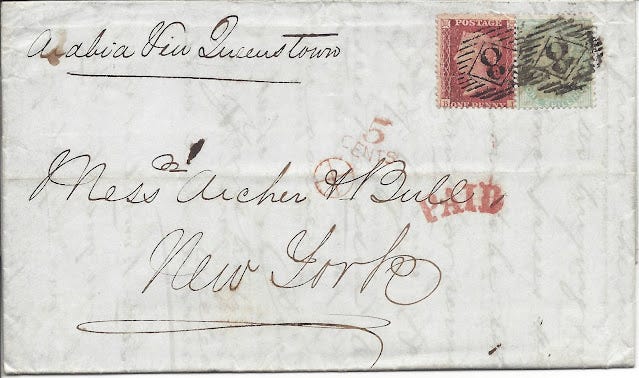 Arabia Via Queenstown
POSTAGE
ONE PENNY
8
8
5
CENTS
PAID
Messrs Archer & Bull
New York